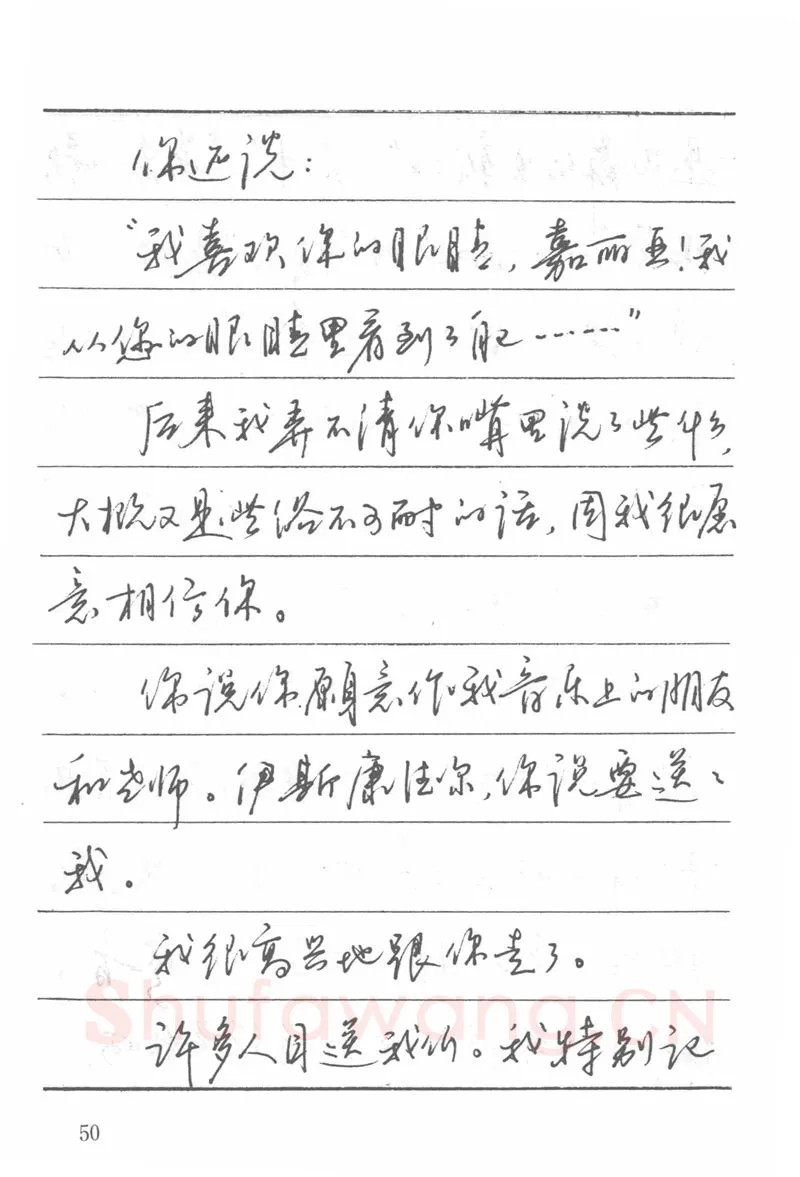 你还说：
“我喜欢你的眼睛，嘉丽亚！我
从你的眼睛里看到了自己……”
后来我弄不清你嘴里说了些什么，
大概又是些俗不可耐的话，因我很愿
意相信你。
你说你愿意作我音乐上的朋友
和老师。伊斯康佳尔，你说要送送
我。
我很高兴地跟你走了。
许多人目送我们。我特别记
Shufawang.CN
50